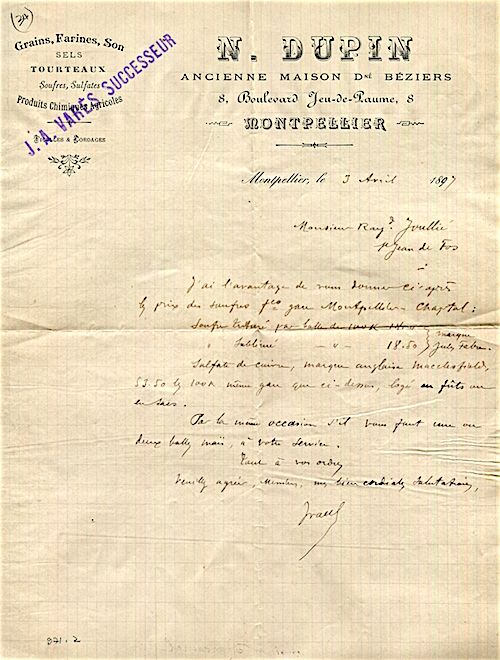 34
Grains, Farines, Son
SELS
TOURTEAUX
Soufres, Sulfates
Produits Chimiques Agricoles
FICELLES & CORDAGES
J. A. VARÈS SUCCESSEUR
N. DUPIN
ANCIENNE MAISON Dné BÉZIERS
8, Boulevard Jeu-de-Paume, 8
MONTPELLIER
Montpellier, le 3 Avril 1897
Monsieur Raym.d Joullié
St Jean de Fos
J'ai l'avantage de vous donner ci-après
les prix des soufres fco gare Montpellier-Chaptal :
Soufre trituré par balle de 100K
" Sublimé - " - 18.50 marque Jules Fabre
Sulfate de cuivre, marque anglaise Macclesfield,
53.50 les 100K même gare que ci-dessus, logé en fûts ou
en sacs.
Par la même occasion s'il vous faut une ou
deux balles maïs, à votre service.
Tout à vos ordres
Veuillez agréer, Monsieur, mes bien cordiales salutations,
971.2